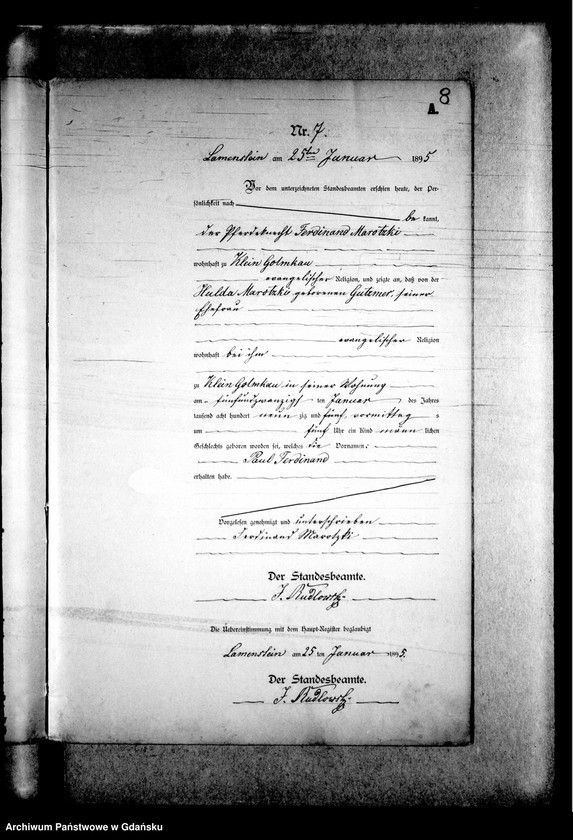 8
A
Nr. 7.
Lamenstein am 25ten Januar 1895
Vor dem unterzeichneten Standesbeamten erschien heute, der Per-
sönlichkeit nach
be kannt,
der Pferdeknecht Ferdinand Marotzki
wohnhaft zu Klein Golmkau
evangelischer Religion, und zeigte an, daß von der
Hulda Marotzki geborenen Gutzmer, seiner
Ehefrau
evangelischer Religion
wohnhaft bei ihm
zu Klein Golmkau in seiner Wohnung
am fünfundzwanzigsten Januar des Jahres
tausend acht hundert neunzig und fünf, vormittags
um fünf Uhr ein Kind männlichen
Geschlechts geboren worden sei, welches die Vornamen:
Paul Ferdinand
erhalten habe.
Vorgelesen genehmigt und unterschrieben
Ferdinand Marotzki
Der Standesbeamte.
Die Uebereinstimmung mit dem Haupt-Register beglaubigt
Lamenstein am 25 ten Januar 1895.
Der Standesbeamte.
Archiwum Państwowe w Gdańsku